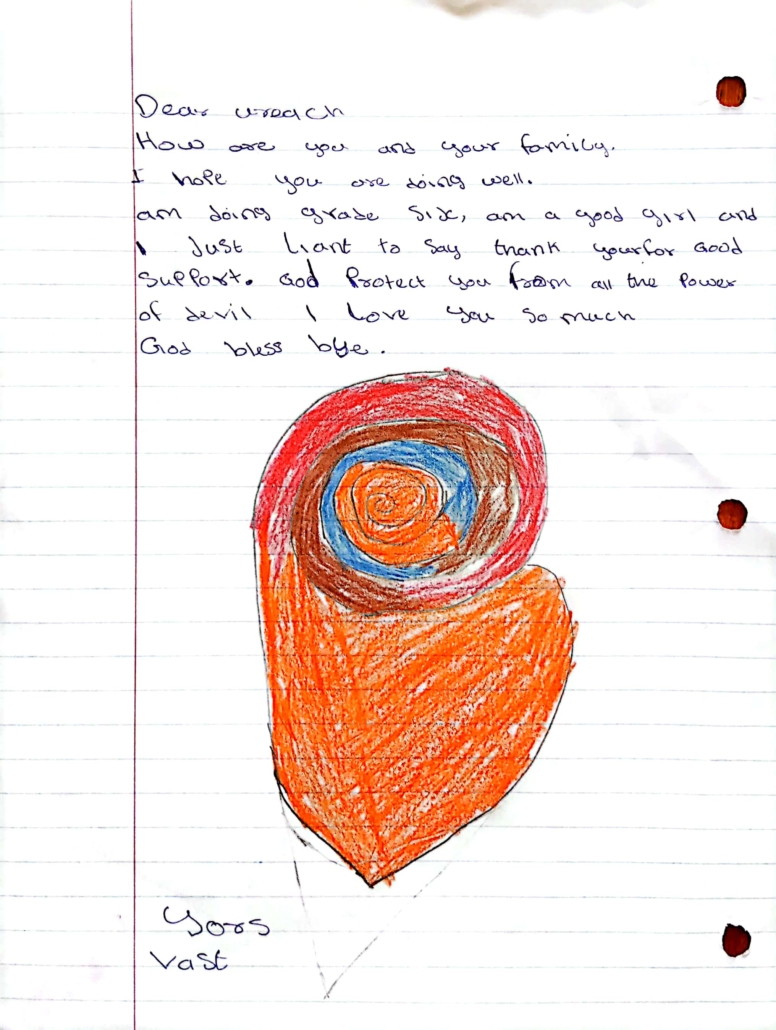 Dear ureach
How are you and your family.
I hope you are doing well.
am doing grade six, am a good girl and
I Just Liant to say thank yourfor Good
Support. God Protect you from all the Power
of devil I Love you so much
God bless bye.
Yors
Vast